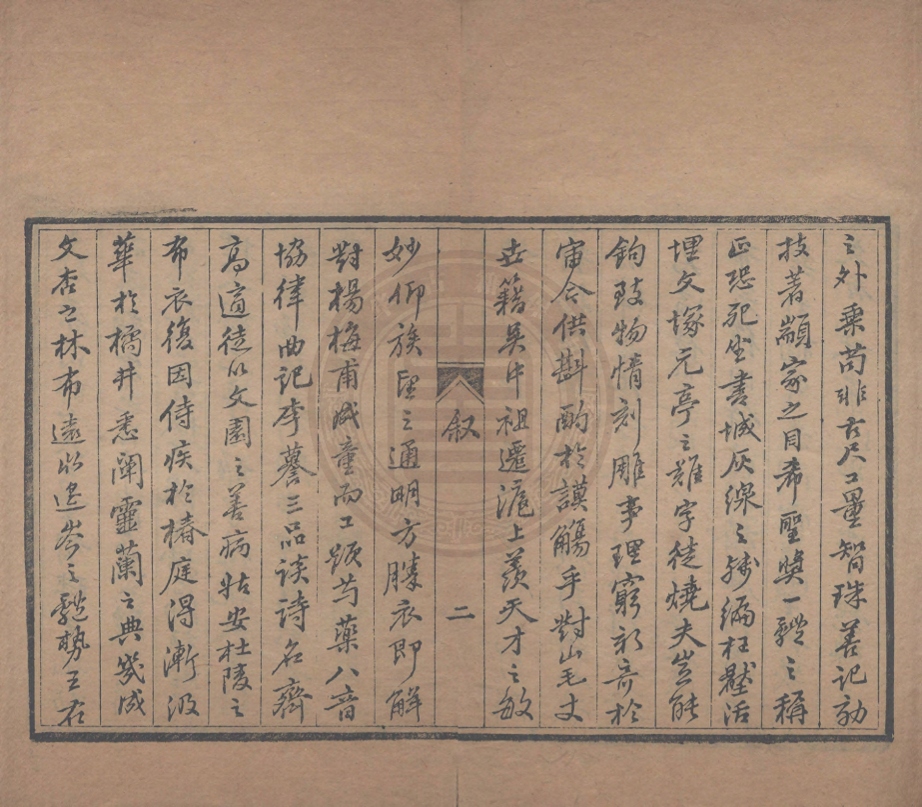 之外乘苟非古尺工量智珠善記効
技著顓家之目希聖奬一體之稱
正恐死坐書城灰線之殘編枉讎活
埋文塚元亭之難字徒燒夫豈能
鉤致物情刻雕事理窮新奇於
宙合供斟酌於謨觴乎對山毛丈
世籍吳中祖遷滬上羨天才之敏
叙
二
妙仰族望之通明方勝衣即解
對楊梅甫成童而工頌芍藥八音
協律曲記李謩三品談詩名齊
高適徒以文園之善病姑安杜陵之
布衣復因侍疾於椿庭得漸汲
華於橘井悉闡靈蘭之典幾成
文杏之林布遠 遥岑之 勢王右